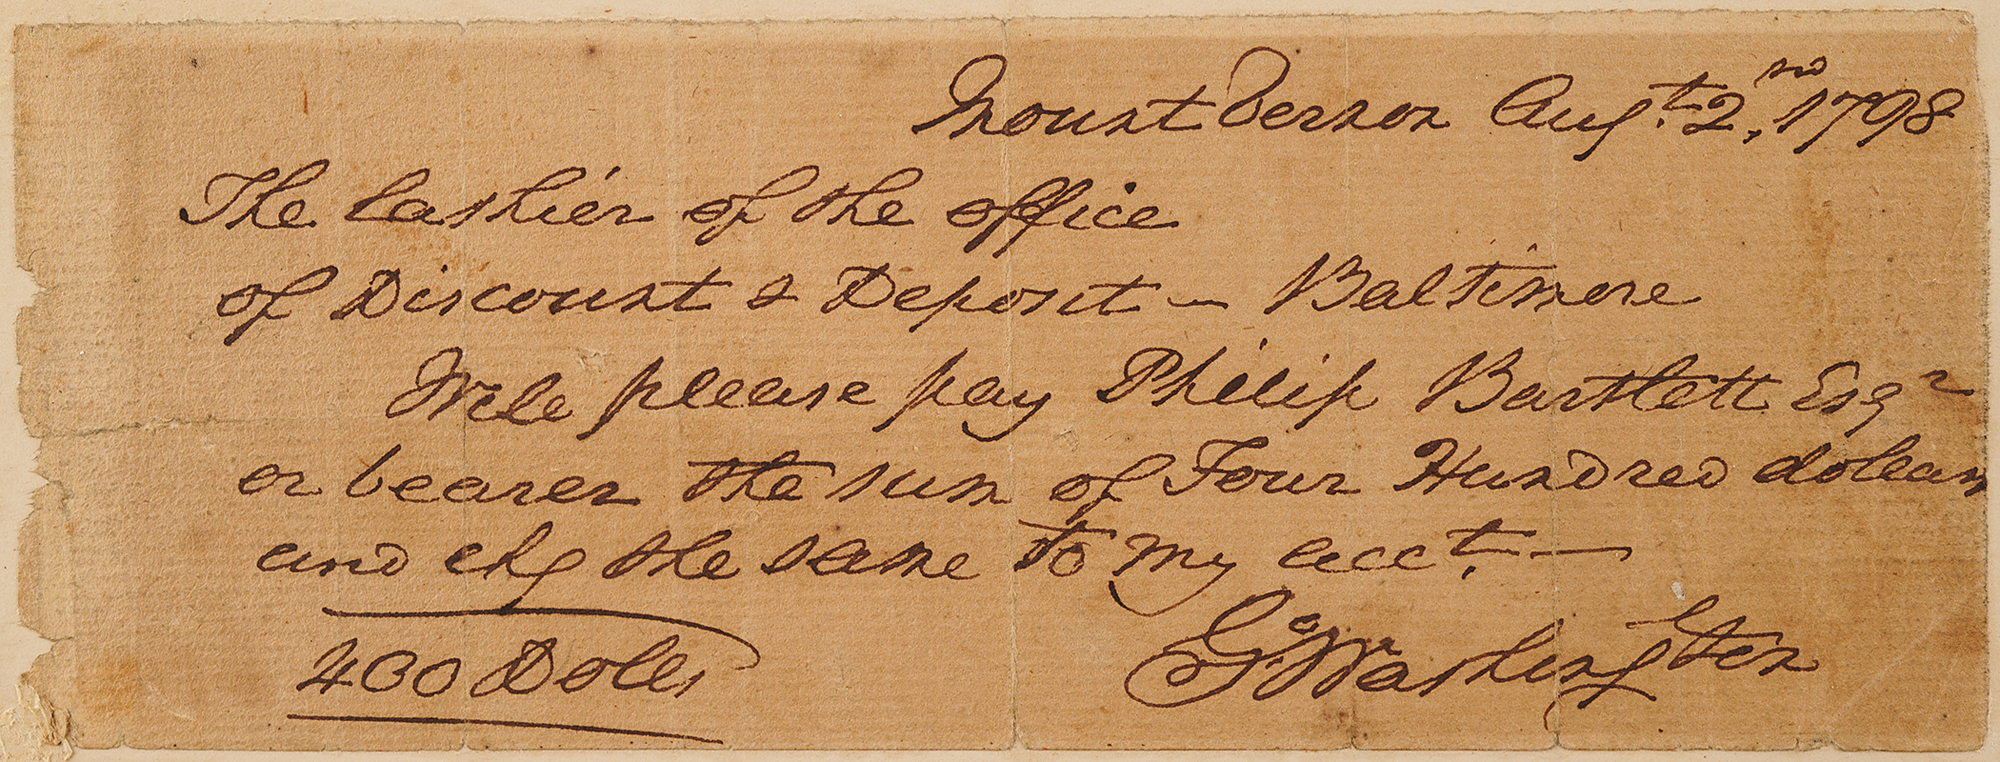 Mount Vernon Augt. 2nd, 1798
The Cashier of the office
of Discount & Deposit — Baltimore
Will please pay Philip Bartlett Esqr
or bearer the sum of Four Hundred dollars
and chg the same to my acct. —
400 Dolls
Go. Washington